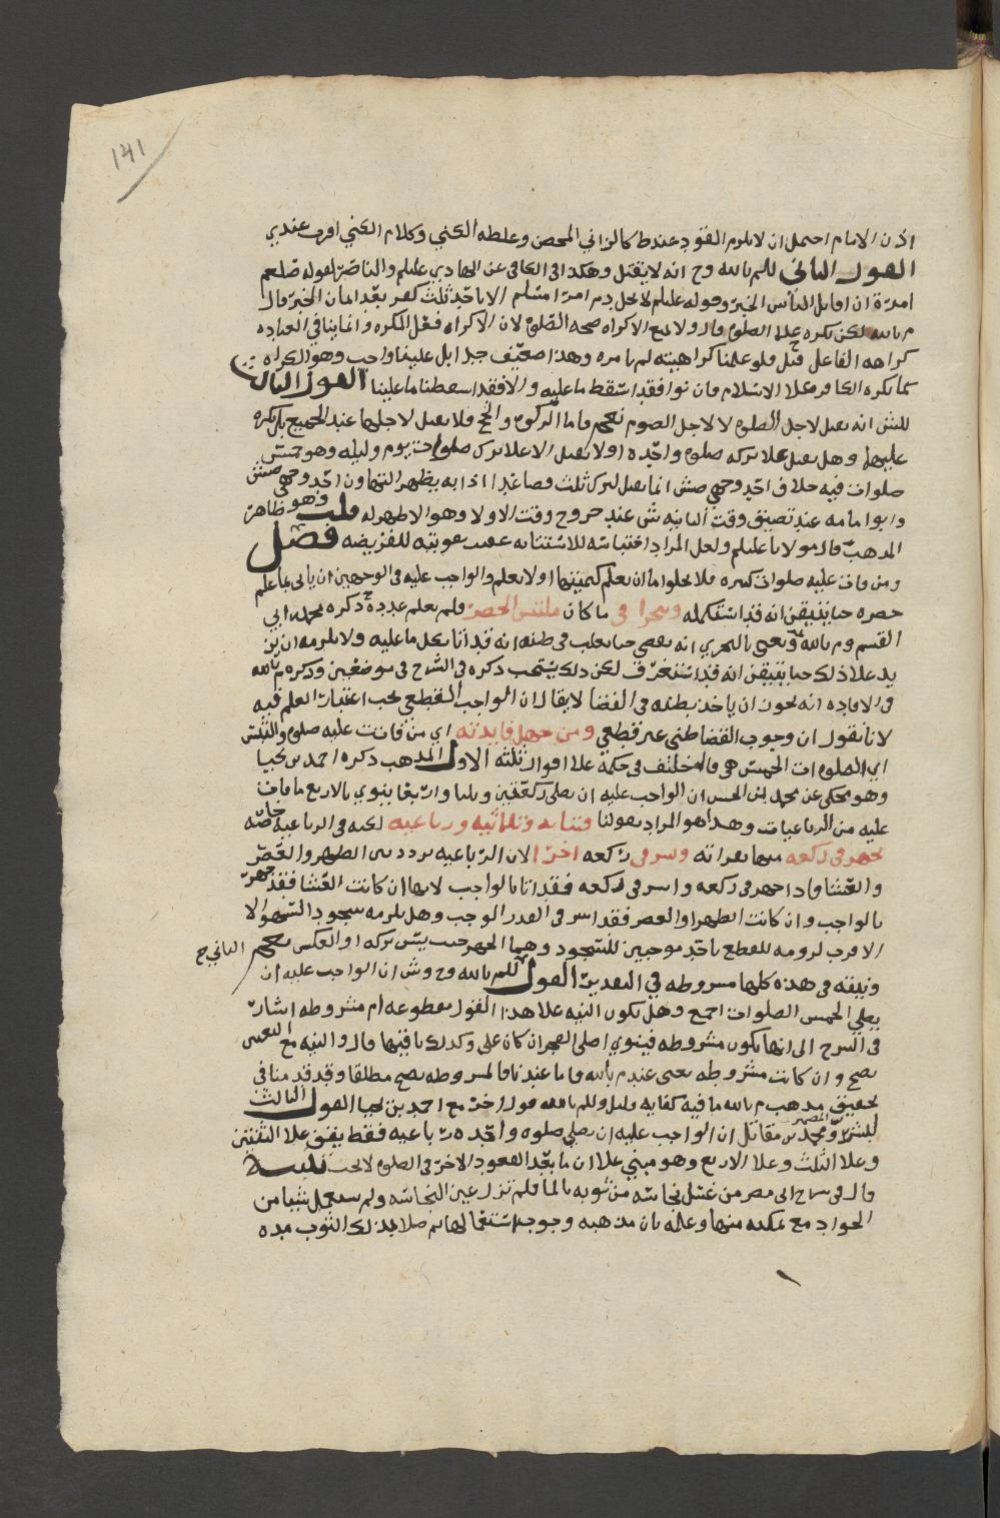 ١٤١
اذن الامام احتمل ان لا يلزم القود عند ط كالزاني المحصن وغلطه الكني وكلام الكني اقرب عندي
القول الثاني للم بالله وح انه لا يقتل وهكذا في الكافي عن الهادي عليلم والناصر لقوله صلعم
امرت ان اقاتل الناس الخبر وقوله عليلم لا يحل دم امرء مسلم الا باحد ثلث كفر بعد ايمان الخبر قال
م بالله لكن يكره على الصلوه قال ولا يمنع الاكراه صحه الصلوه لان الاكراه فعل المكره وانما ينافي العباده
كراهه الفاعل قيل فلو علمنا كراهيته لم نامره وهذا ضعيف جدا بل علينا واجب وهو اكراه
كما يكره الكافر على الاسلام فان نوا فقد اسقط ما عليه والا فقد اسقطنا ما علينا القول الثالث
للش انه يقتل لاجل الصلوه لا لاجل الصوم نعم واما الزكوه والحج فلا يقتل لاجلهما عند الجميع بل يكره
عليهما وهل يقتل على تركه صلوه واحده او لا يقتل الا على ترك صلوات يوم وليله وهو خمس
صلوات فيه خلاف احد وجهي صش انما يقتل لترك ثلث فصاعدا اذ به يظهر التهاون احد وجهي صش
وابوا مامه عند تضيق وقت الثانيه ش عند خروج وقت الاولا وهو الاظهر له قلت وهو ظاهر
المذهب قال مولانا عليلم ولعل المراد احتباسه للاستتابه عقيب تفويته للفريضه فصل
ومن فات عليه صلوات كثيره فلا يخلوا اما ان يعلم كميتها او لا يعلم والواجب عليه في الوجهين ان ياتي بما علم
حصره حتا يتيقن انه قد استكمله ويتحرا في ما كان ملتبس الحصر فلم يعلم عدده ذكره محمد ابي
القسم وم بالله ويعني بالتحري انه يقضي حتا يغلب في ظنه انه قد اتا بكل ما عليه ولا يلزمه ان
يزيد على ذلك حتا يتيقن انه قد استغرق لكن ذلك يستحب ذكره في الشرح في موضعين وذكره م بالله
في الافاده انه يجوز ان ياخذ بظنه في القضا لا يقال ان الواجب القطعي يجب اعتبار العلم فيه
لانا نقول ان وجوب القضا ظني غير قطعي ومن جهل فايتته اي من فاتت عليه صلوه والتبس
اي الصلوات الخمس هي فالمختلف في حكمه على اقوال ثلثه الاول المذهب ذكره احمد بن يحيا
وهو محكي عن محمد بن الحسن ان الواجب عليه ان يصلي ركعتين وثلثا واربعا ينوي بالاربع ما فات
عليه من الرباعيات وهذا هو المراد بقولنا فثنائيه وثلاثيه ورباعيه لكنه في الرباعيه خاصه
يجهر في ركعه منها بقراته ويسر في ركعه اخرا لان الرباعيه تردد بين الظهر والعصر
والعشا فاذا جهر في ركعه واسر في ركعه فقد اتا بالواجب لانها ان كانت العشا فقد جهر
بالواجب وان كانت الظهر او العصر فقد اسر في القدر الوجب وهل يلزمه سجود السهو الا
الاقرب لزومه للقطع باحد موجبين للسجود وهما الجهر حيث يسن تركه او العكس نعم
ونيته في هذه كلها مشروطه في التعدين القول الثاني ح للم بالله وح وش ان الواجب عليه ان
يصلي الخمس الصلوات اجمع وهل تكون النيه على هذا القول مقطوعه ام مشروطه اشار
في الشرح الى انها تكون مشروطه فينوي اصلي الفجر ان كان علي وكذلك باقيها قال والنيه مع التعيين
يصح وان كانت مشروطه يعني عند م بالله واما عندنا فالمشروطه يصح مطلقا وقد قدمنا في
تحقيق مذهب م بالله ما فيه كفايه وقيل وللم بالله قول اخر مع احمد بن يحيا القول الثالث
لبشر المصري ومحمد بن مقاتل ان الواجب عليه ان يصلي صلوه واحده رباعيه فقط يقف على الثنتين
وعلى الثلث وعلى الاربع وهو مبني على ان ما بعد القعود الاخر في الصلوه لا يجب تنبيه
قال في شرح ابي مضر من غسل نجاسه من ثوبه بالما فلم تزل عين النجاسه ولم يستعمل شيا من
الحواد مع تمكنه منها وعلم بان مذهبه وجوب استعمالها ثم صلا بذلك الثوب مده